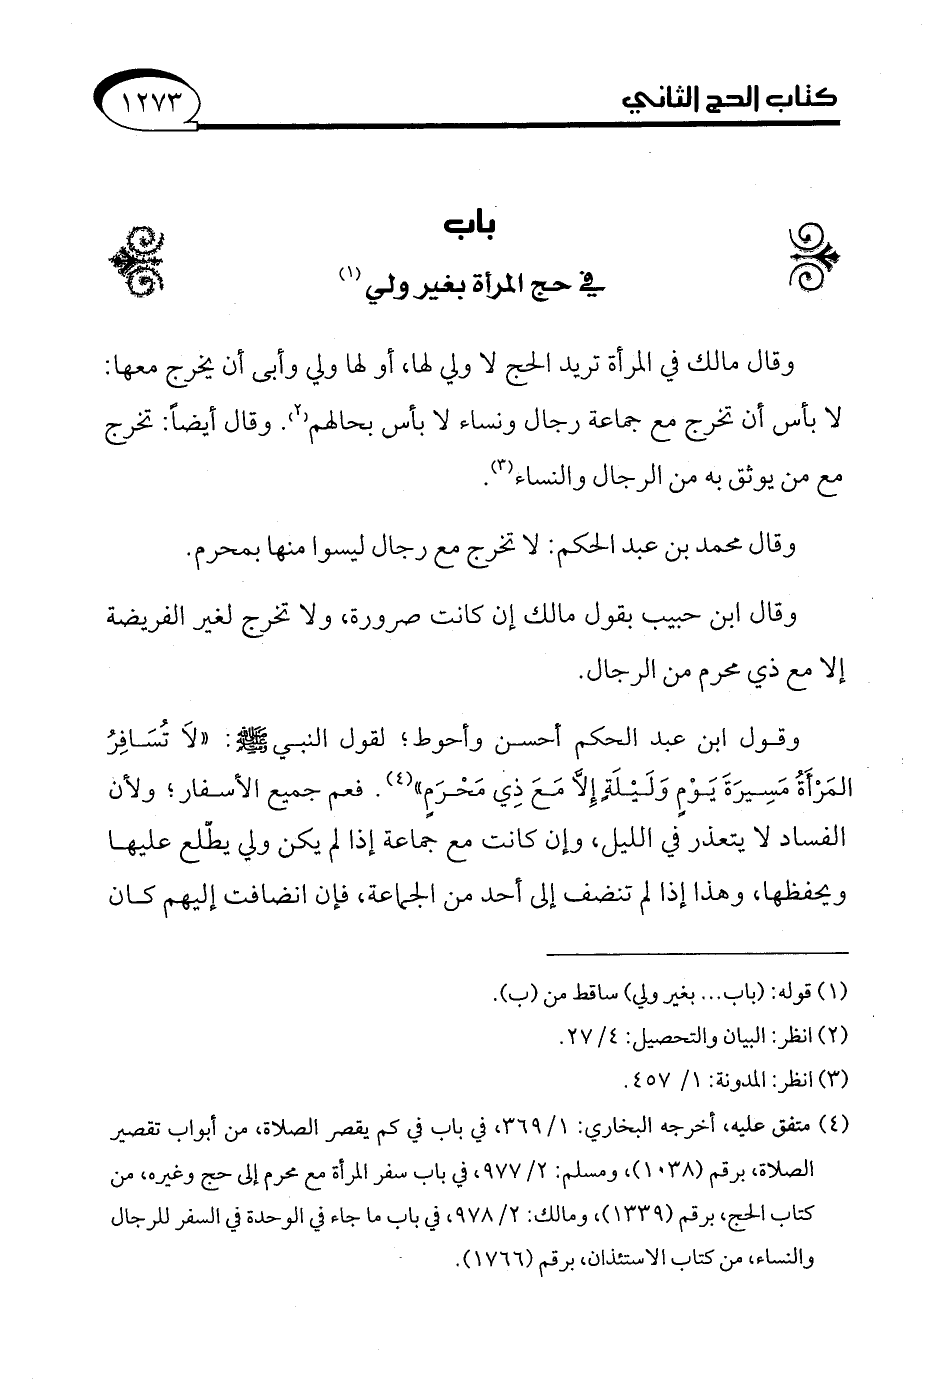 كتاب الحج الثاني
١٢٧٣
باب
في حج المرأة بغير ولي (١)
وقال مالك في المرأة تريد الحج لا ولي لها، أو لها ولي وأبى أن يخرج معها:
لا بأس أن تخرج مع جماعة رجال ونساء لا بأس بحالهم(٢). وقال أيضاً: تخرج
مع من يوثق به من الرجال والنساء(٣).
وقال محمد بن عبد الحكم: لا تخرج مع رجال ليسوا منها بمحرم.
وقال ابن حبيب بقول مالك إن كانت صرورة، ولا تخرج لغير الفريضة
إلا مع ذي محرم من الرجال.
وقول ابن عبد الحكم أحسن وأحوط؛ لقول النبي ﷺ: «لَا تُسَافِرُ
المَرْأَةُ مَسِيرَةَ يَوْمٍ وَلَيْلَةٍ إِلاَّ مَعَ ذِي مَحْرَمٍ»(٤). فعم جميع الأسفار؛ ولأن
الفساد لا يتعذر في الليل، وإن كانت مع جماعة إذا لم يكن ولي يطّلع عليها
ويحفظها، وهذا إذا لم تنضف إلى أحد من الجماعة، فإن انضافت إليهم كان
(١) قوله: (باب... بغير ولي) ساقط من (ب).
(٢) انظر: البيان والتحصيل: ٤/ ٢٧.
(٣) انظر: المدونة: ١/ ٤٥٧.
(٤) متفق عليه، أخرجه البخاري: ١/ ٣٦٩، في باب في كم يقصر الصلاة، من أبواب تقصير
الصلاة، برقم (١٠٣٨)، ومسلم: ٢/ ٩٧٧، في باب سفر المرأة مع محرم إلى حج وغيره، من
كتاب الحج، برقم (١٣٣٩)، ومالك: ٢/ ٩٧٨، في باب ما جاء في الوحدة في السفر للرجال
والنساء، من كتاب الاستئذان، برقم (١٧٦٦).